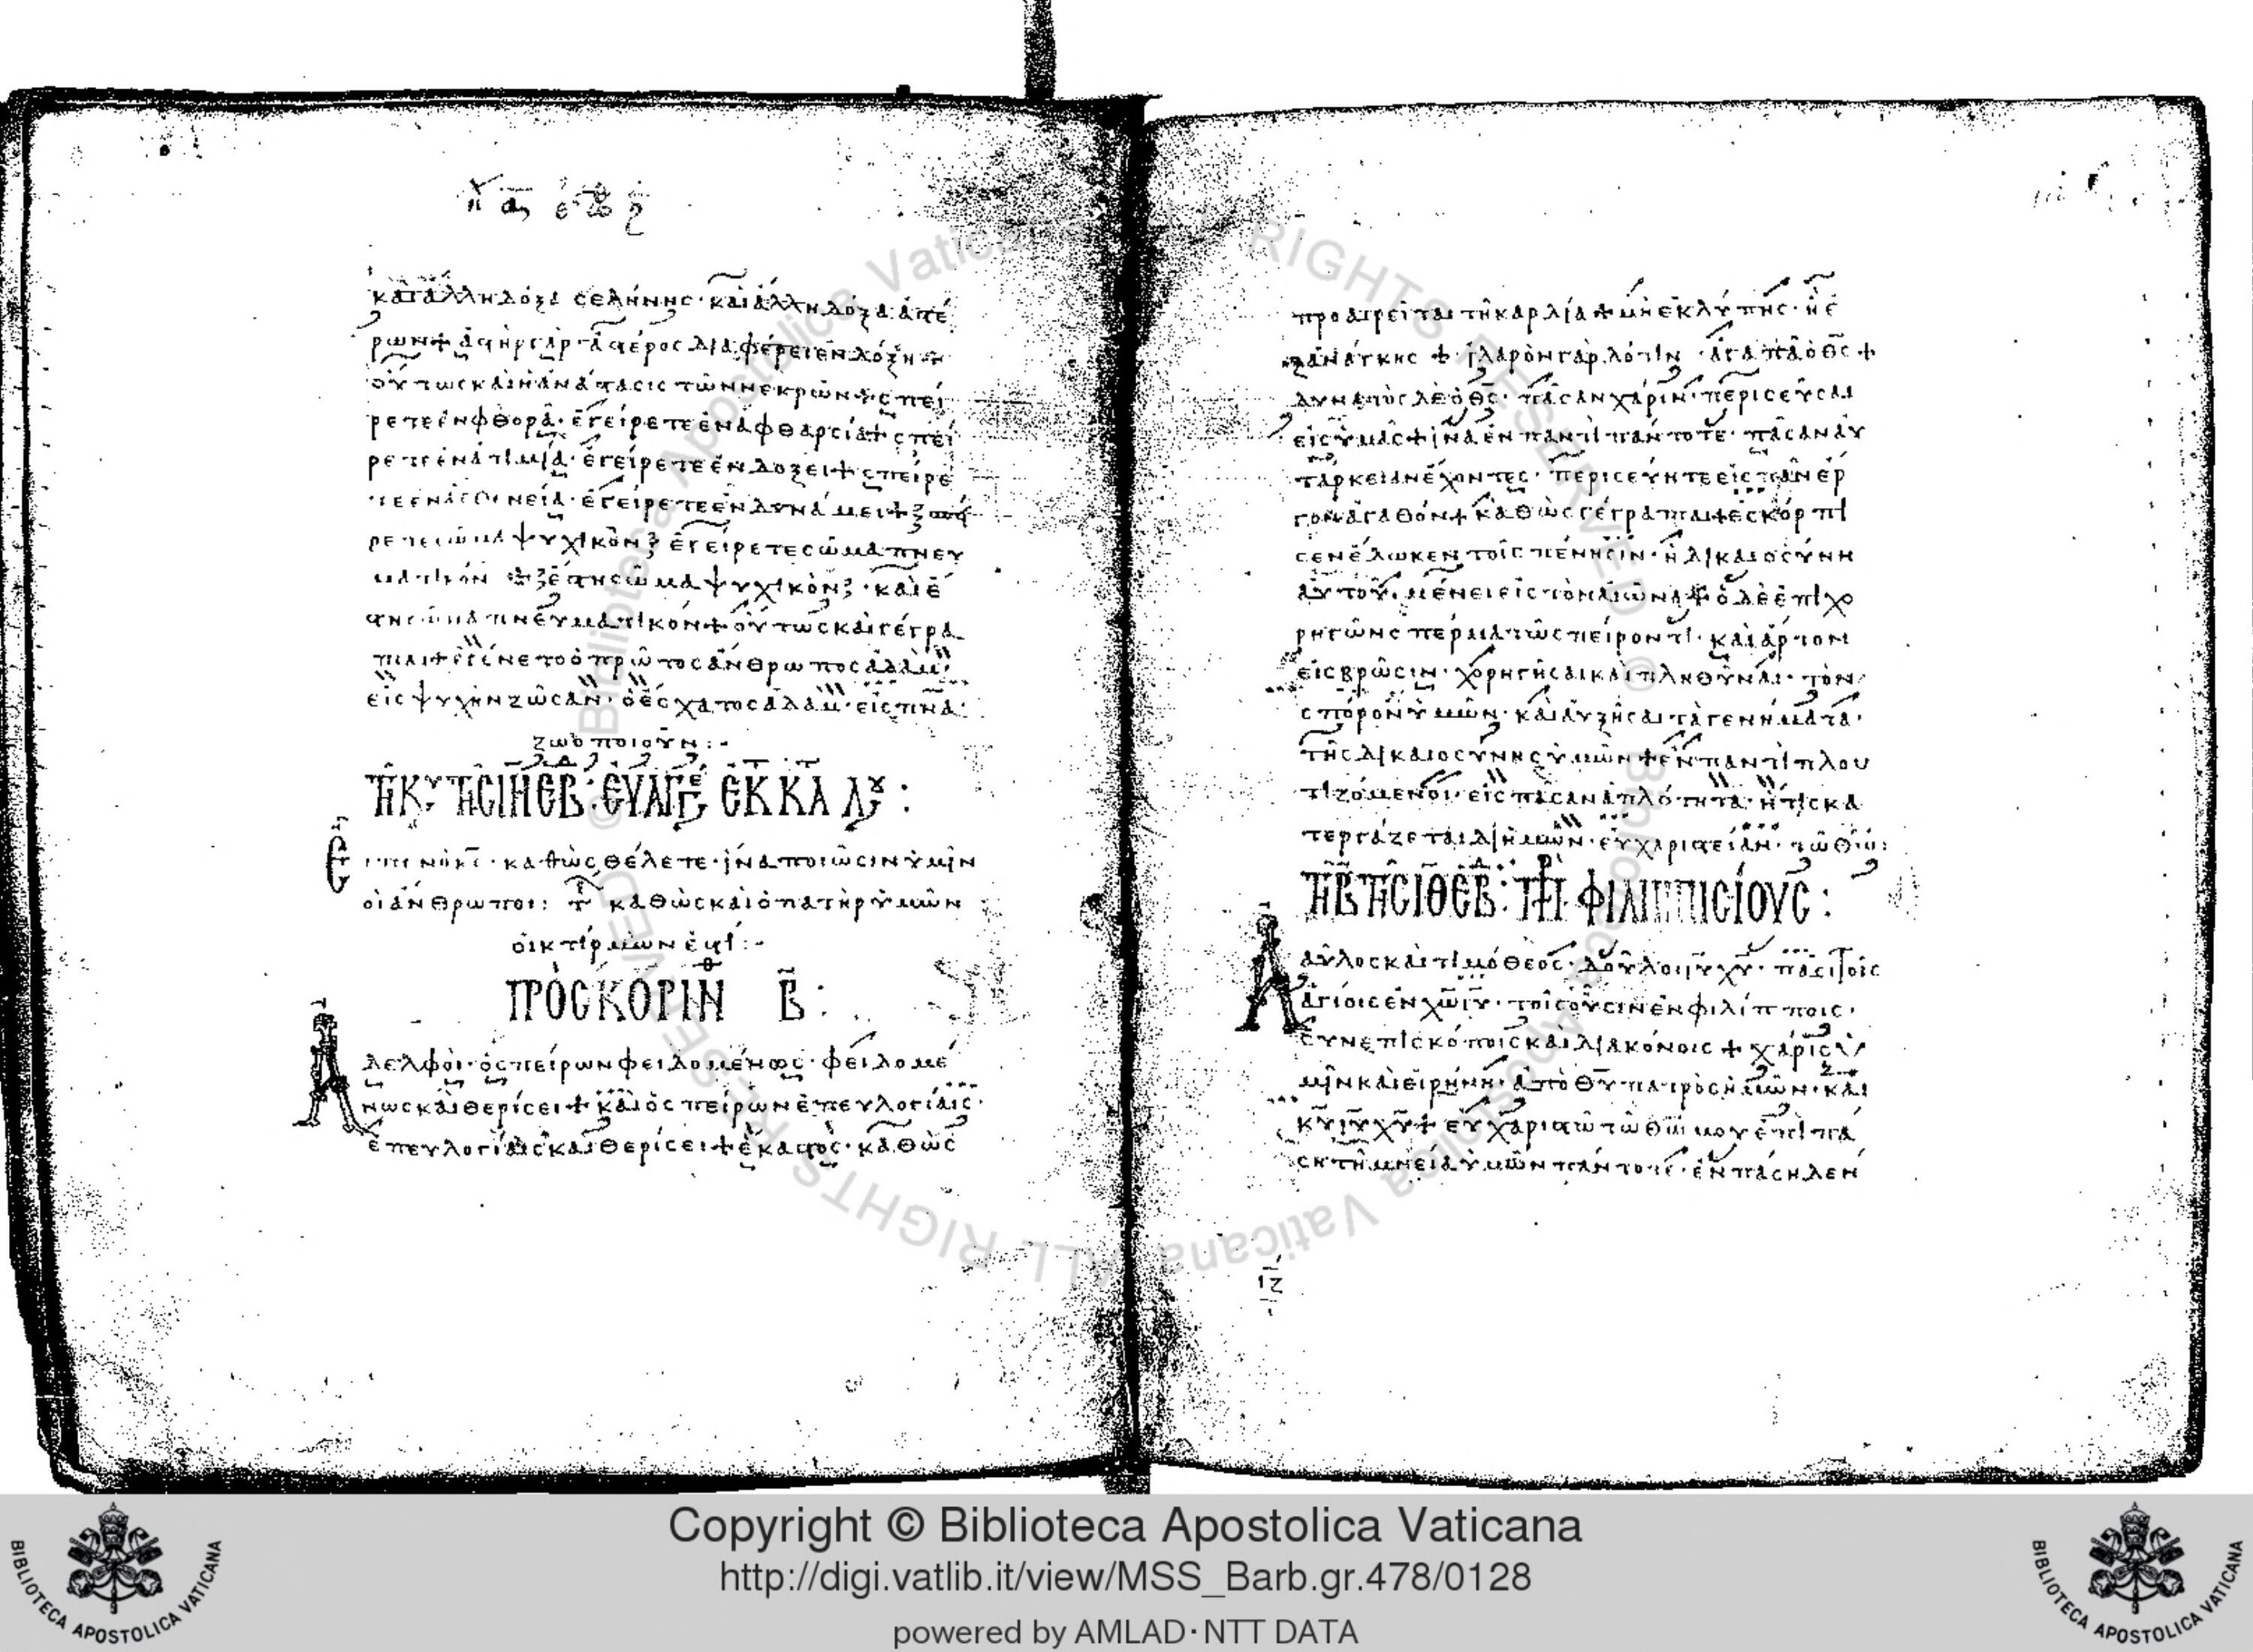 κατάλλη δόξα σελήνης· καὶ ἄλλη δόξα ἀστέ
ρων + ἀστὴρ γὰρ ἀστέρος διαφέρει ἐν δόξη +
οὕτως καὶ ἡ ἀνάστασις τῶν νεκρῶν + σπεί
ρετε ἐν φθορᾶ· ἐγείρετε ἐν ἀφθαρσία + σπεί
ρετε ἐν ἀτιμία· ἐγείρετε ἐν δόξει + σπείρε
τε ἐν ἀσθενεία· ἐγείρετε ἐν δυνάμει +
ρετε σῶμα ψυχικὸν ἐγείρετε σῶμα πνευ
ματικόν + ἔστη σῶμα ψυχικὸν· καὶ ἔ
στη σῶμα πνευματικόν + οὕτως καὶ γέγρα
πται + ἐγένετο ὁ πρῶτος ἄνθρωπος ἀδὰμ
εἰς ψυχὴν ζῶσαν· ὁ ἔσχατος ἀδὰμ· εἰς πνα·
ζωοποιοῦν:-
ΕΥΑΓΓΕ ΕΚ Κ Α ΛΟΥ:
Εἶπεν ὁ κς· καθὼς θέλετε· ἵνα ποιῶσιν ὑμῖν
οἱ ἄνθρωποι: καθὼς καὶ ὁ πατὴρ ὑμῶν
οἰκτίρμων ἐστί:-
ΠΡὸς ΚΟΡΙΝ Β:
Ἀδελφοὶ· ὁ σπείρων φειδομένως· φειδομέ
νως καὶ θερίσει + καὶ ὁ σπείρων ἐπ ευλογίαις·
ἐπ ευλογίαις καὶ θερίσει + ἕκαστος· καθὼς
προαιρεῖται τῆ καρδία + μὴ ἐκ λύπης· ἢ ἐ
ξ ἀνάγκης + ἱλαρὸν γὰρ δότιν· ἀγαπᾶ ὁ θς +
δυνατὸς δὲ ὁ θς· πᾶσαν χάριν· περισεῦσαι
εἰς ὑμᾶς + ἵνα ἐν παντὶ πάντοτε· πᾶσαν αὐ
τάρκειαν ἔχοντες· περισεύητε εἰς πᾶν ἔρ
γον ἀγαθόν + καθὼς γέγραπται + ἐσκόρπι
σεν ἔδωκεν τοῖς πέννσιν· ἡ δικαιοσύνη
αὐτοῦ· μένει εἰς τὸν αἰῶνα + ὁ δὲ ἐπιχο
ρηγῶν σπέρμα τῶ σπείροντι· καὶ ἄρτον
εἰς βρῶσιν· χορηγήσαι καὶ πληθύναι· τὸν
σπόρον ὑμῶν· καὶ αὐξήσαι τὰ γενήματα·
τῆς δικαιοσύνης ὑμῶν + ἐν παντὶ πλου
τιζόμενοι· εἰς πᾶσαν ἁπλότητα· ἥτις κα
τεργάζεται δι ἡμῶν· εὐχαριστείαν· τῶ θῶ:
ΦΙΛΙΠΠΙΣΙΟΥΣ:
αῦλος καὶ τιμόθεος· δοῦλοι ιυ χυ· πᾶσι τοῖς
ἁγίοις ἐν χω ιυ· τοῖς οὖσιν ἐν φιλίπποις·
συνεπισκόποις καὶ διακόνοις + χάρις ὑ
μῖν καὶ εἰρήνη· ἀπὸ θυ πατρὸς ἡμῶν· καὶ
κυ ιυ χυ + εὐχαριστῶ τῶ θω μου ἐπὶ πά
ση τῆ μνεία ὑμῶν πάντοτε· ἐν πάση δεή
ιζ
Copyright © Biblioteca Apostolica Vaticana
http://digi.vatlib.it/view/MSS_Barb.gr.478/0128
powered by AMLAD·NTT DATA
BIBLIOTECA APOSTOLICA VATICANA
BIBLIOTECA APOSTOLICA VATICANA